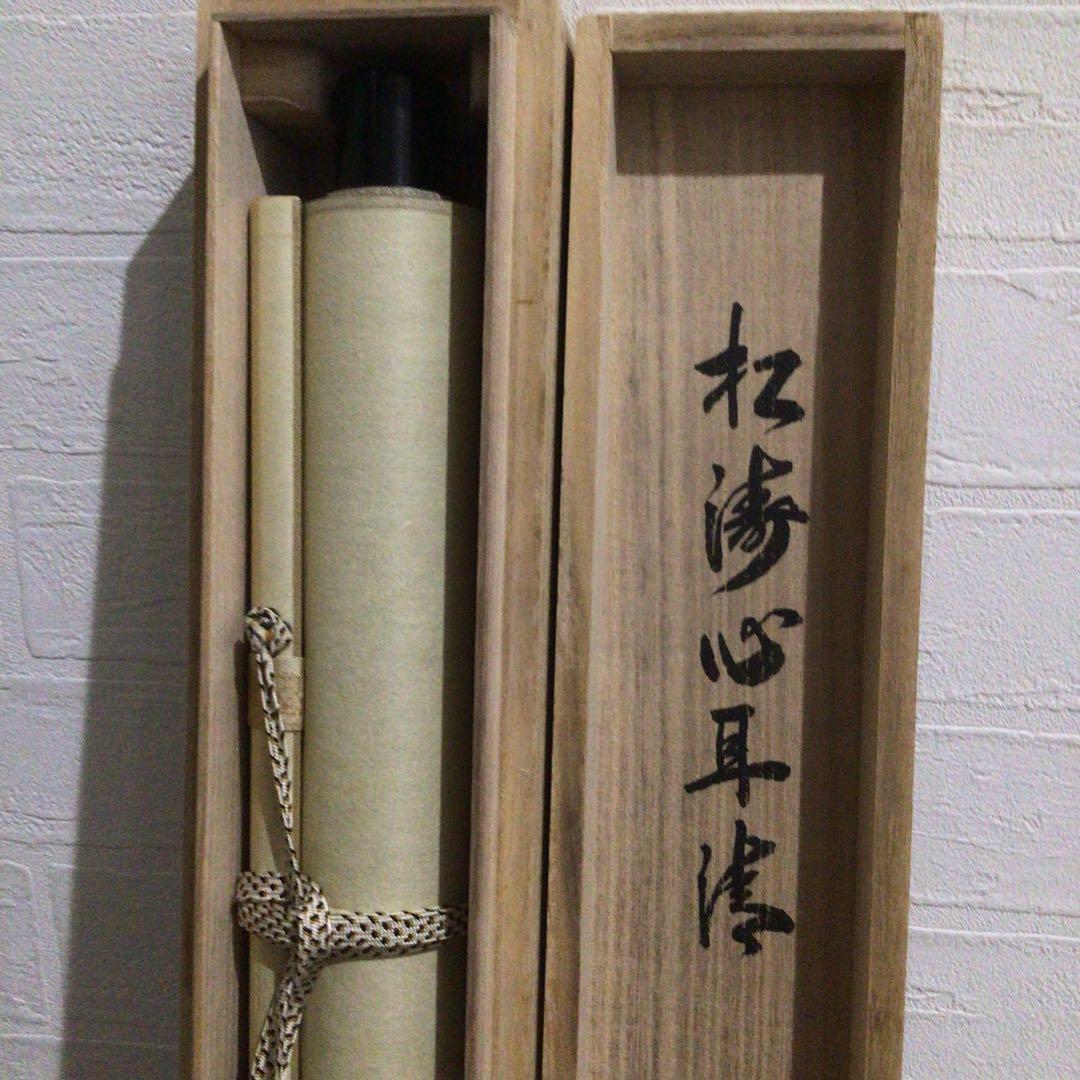 松濤心耳清